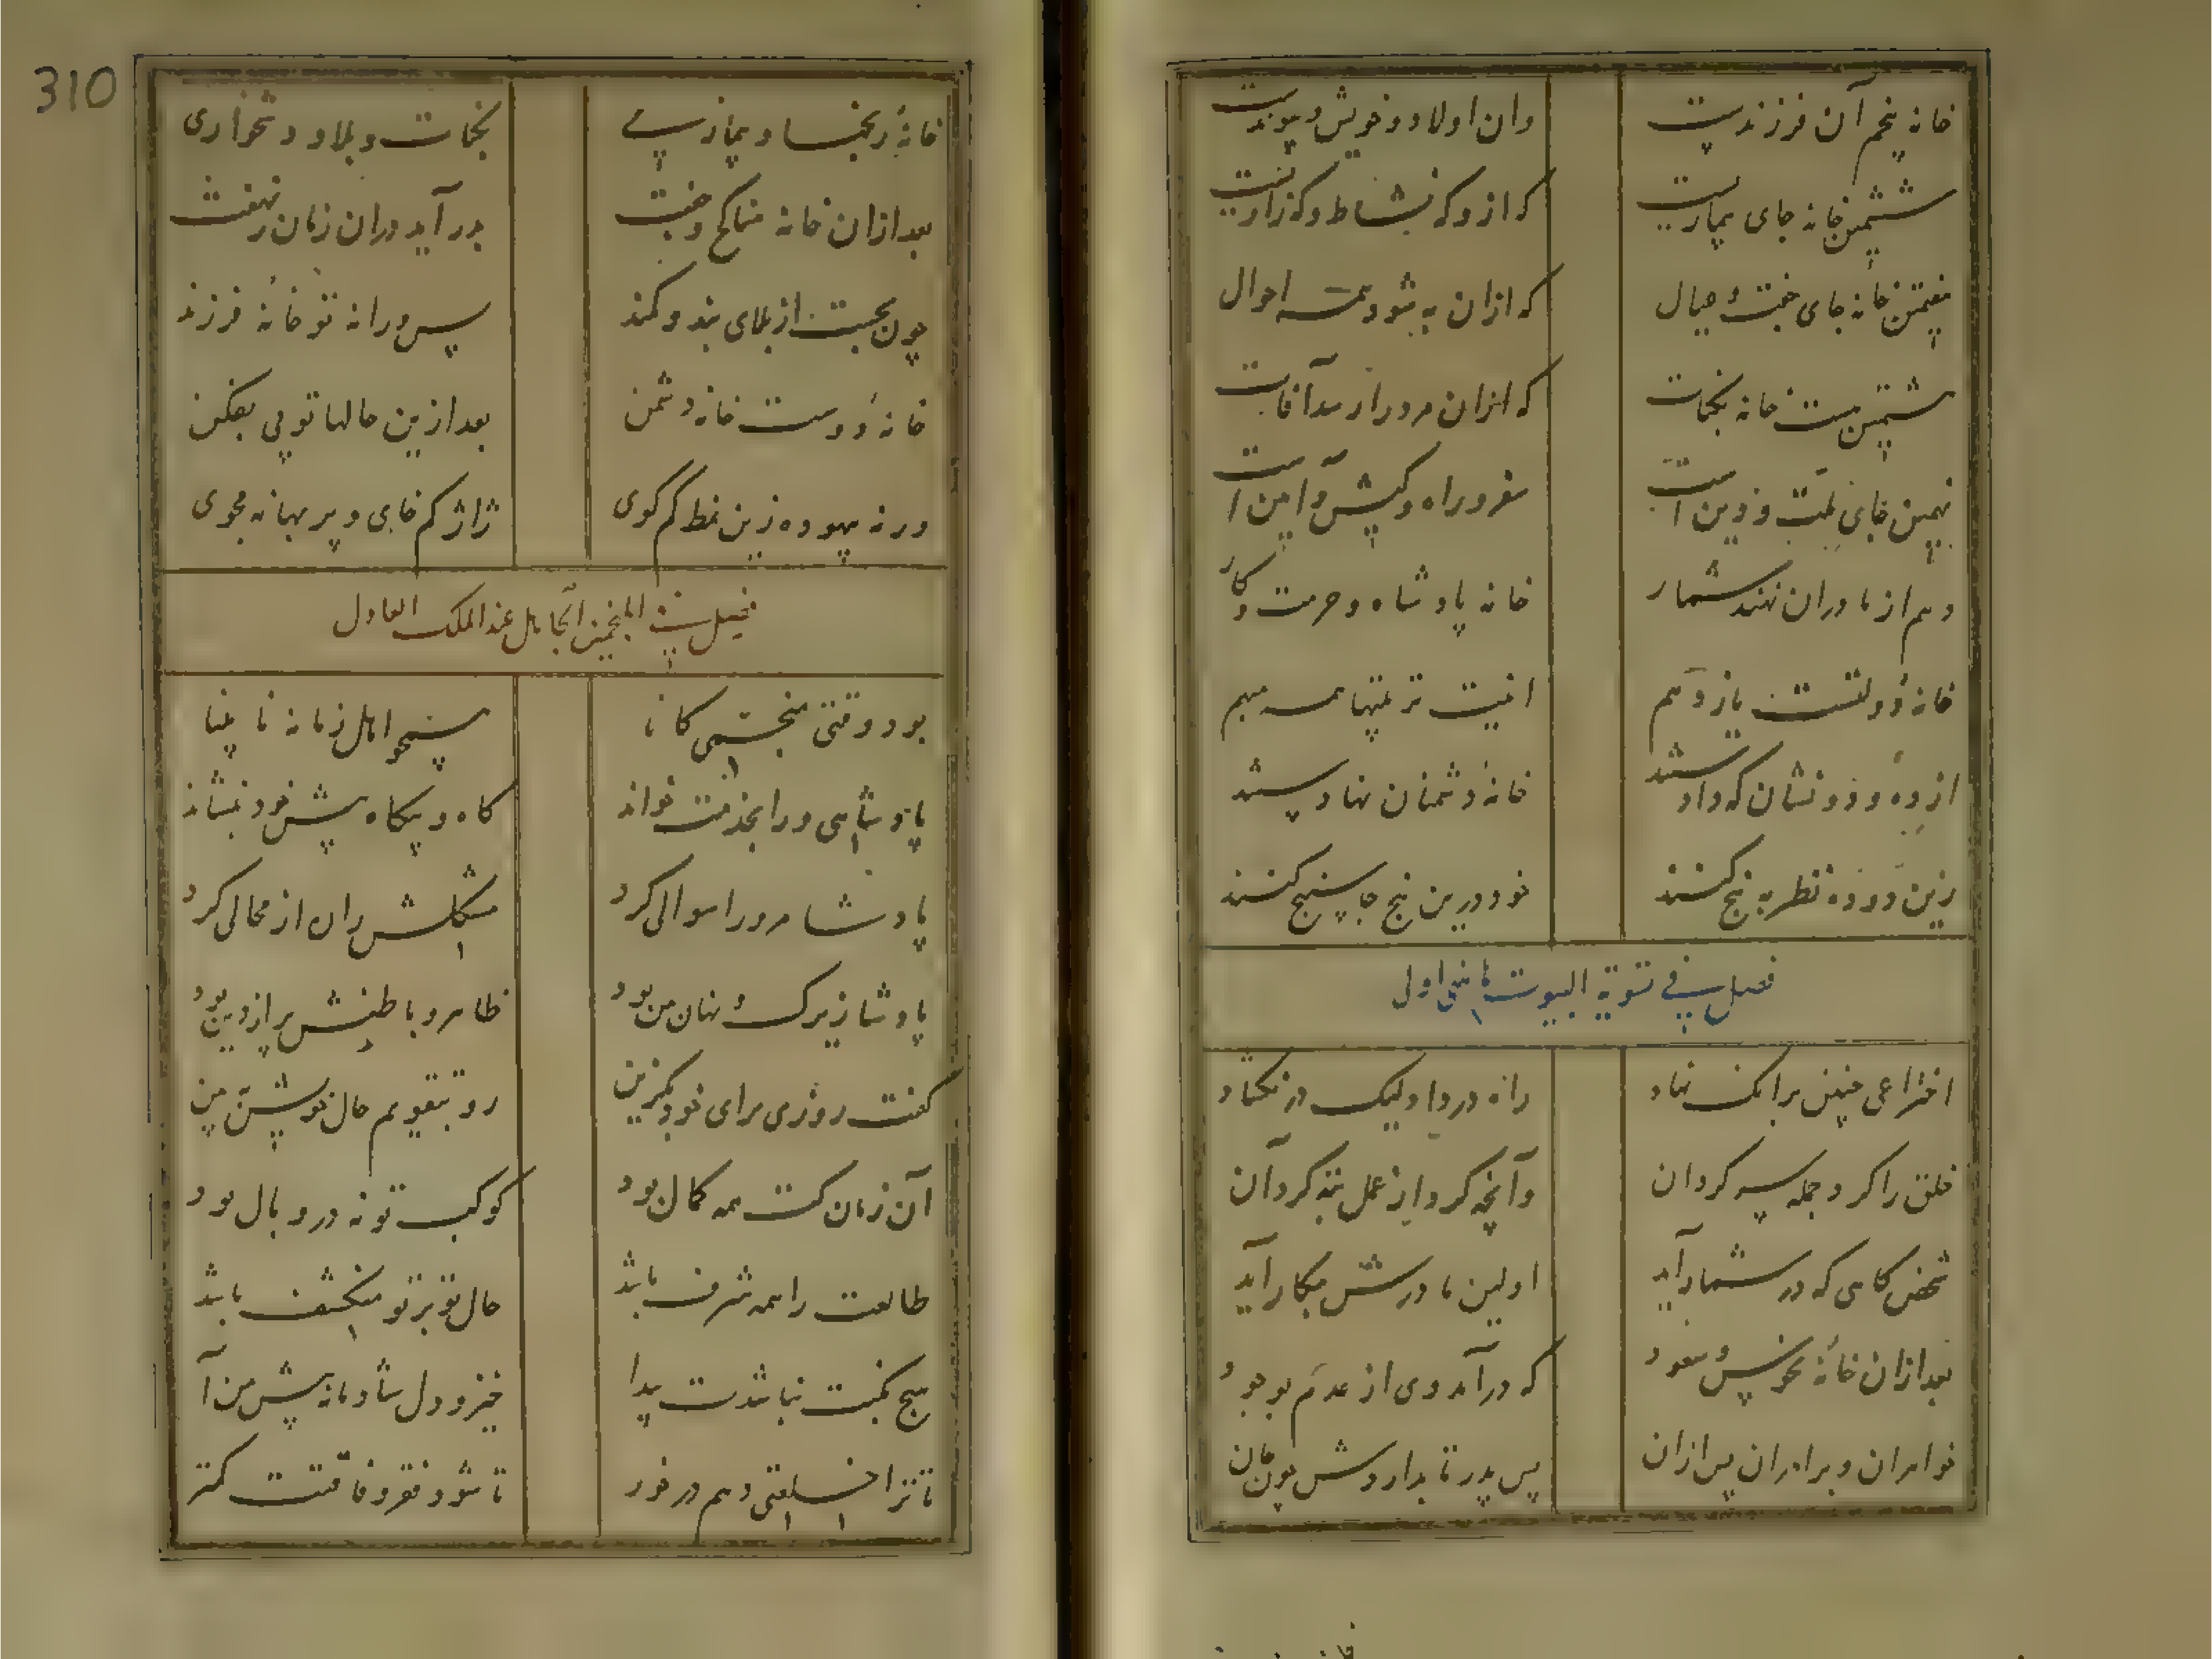 خانه پنجم آن فرزندیست وان اولاد و خویش و پیوندست
ششمین خانه جای بیماریست که ازو که نشاط و که زاریست
هفتمین خانه جای جفت و عیال که ازان به شود همه احوال
هشتمین هست خانه نکبات که ازان مرورا رسد آفات
نهمین جای ملت و دین است سفر و راه و کیش و آیین است
دهم از مادران نهند شمار خانه پادشاه و حرمت و کار
خانه دولتست یازدهم امنیت تربیتها همه مبهم
از ده و دو نشان که دادستند خانه دشمنان نهادستند
زین ده و ده نظر به پنج کنند خود درین پنج جا سپنج کنند
فصل فی تسویة البیوت اول
اختراعی چنین برآنک نهاد راه در داد و لیک در نگشاد
خلق را کرد جمله سرگردان وآنچه کرد از عمل بتر کرد آن
شخص کاهی که در شمار آید اولین مادرش بکار آید
بعد ازان خانهٔ نحوس و سعود که درآمد وی از عدم بوجود
خواهران و برادران پس ازان پس پدر تا بداردش چون جان
310
خانهٔ رنجها و بیماری نکبات و بلا و دشخواری
بعد ازان خانه مناکح و جفت بدرآید دران زمان ز نهفت
چون بجست از بلای بند و کمند پس ورا نه تو خانهٔ فرزند
خانهٔ دوست خانه دشمن بعد ازین حالها تو پی بفکن
ورنه بیهوده زین نمط کم گوی ژاژ کم خای و پر بهانه مجوی
فصل فی المنجم الجاهل عند الملک العادل
بود وقتی منجمی کانا همچو اهل زمانه نابینا
پادشاهی ورا بخدمت خواند گاه و بیگاه پیش خود بنشاند
پادشا مرورا سوالی کرد مشکلش زان از محالی کرد
پادشا زیرک و نهان‌بین بود ظاهر و باطنش پر از دین بود
گفت روزی برای خود بگزین رو بتقویم حال خویش ببین
آن زمان کت همه کمال بود کوکب تو نه در وبال بود
طالعت را همه شرف باشد حال تو بر تو منکشف باشد
هیچ نکبت نباشدت پیدا خیز و دل شادمانه پیش من آ
تا ترا خلعتی دهم در خور تا شود فقر و فاقتت کمتر